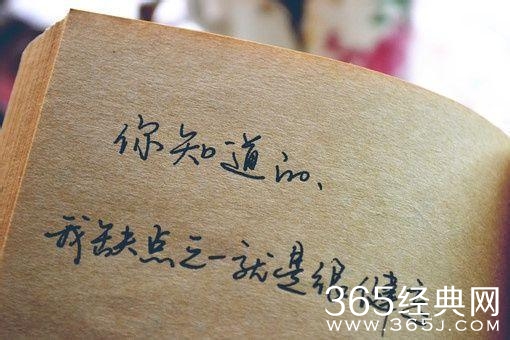 你知道的、
我缺点之一就是很健忘
365经典网
WWW.365J.COM